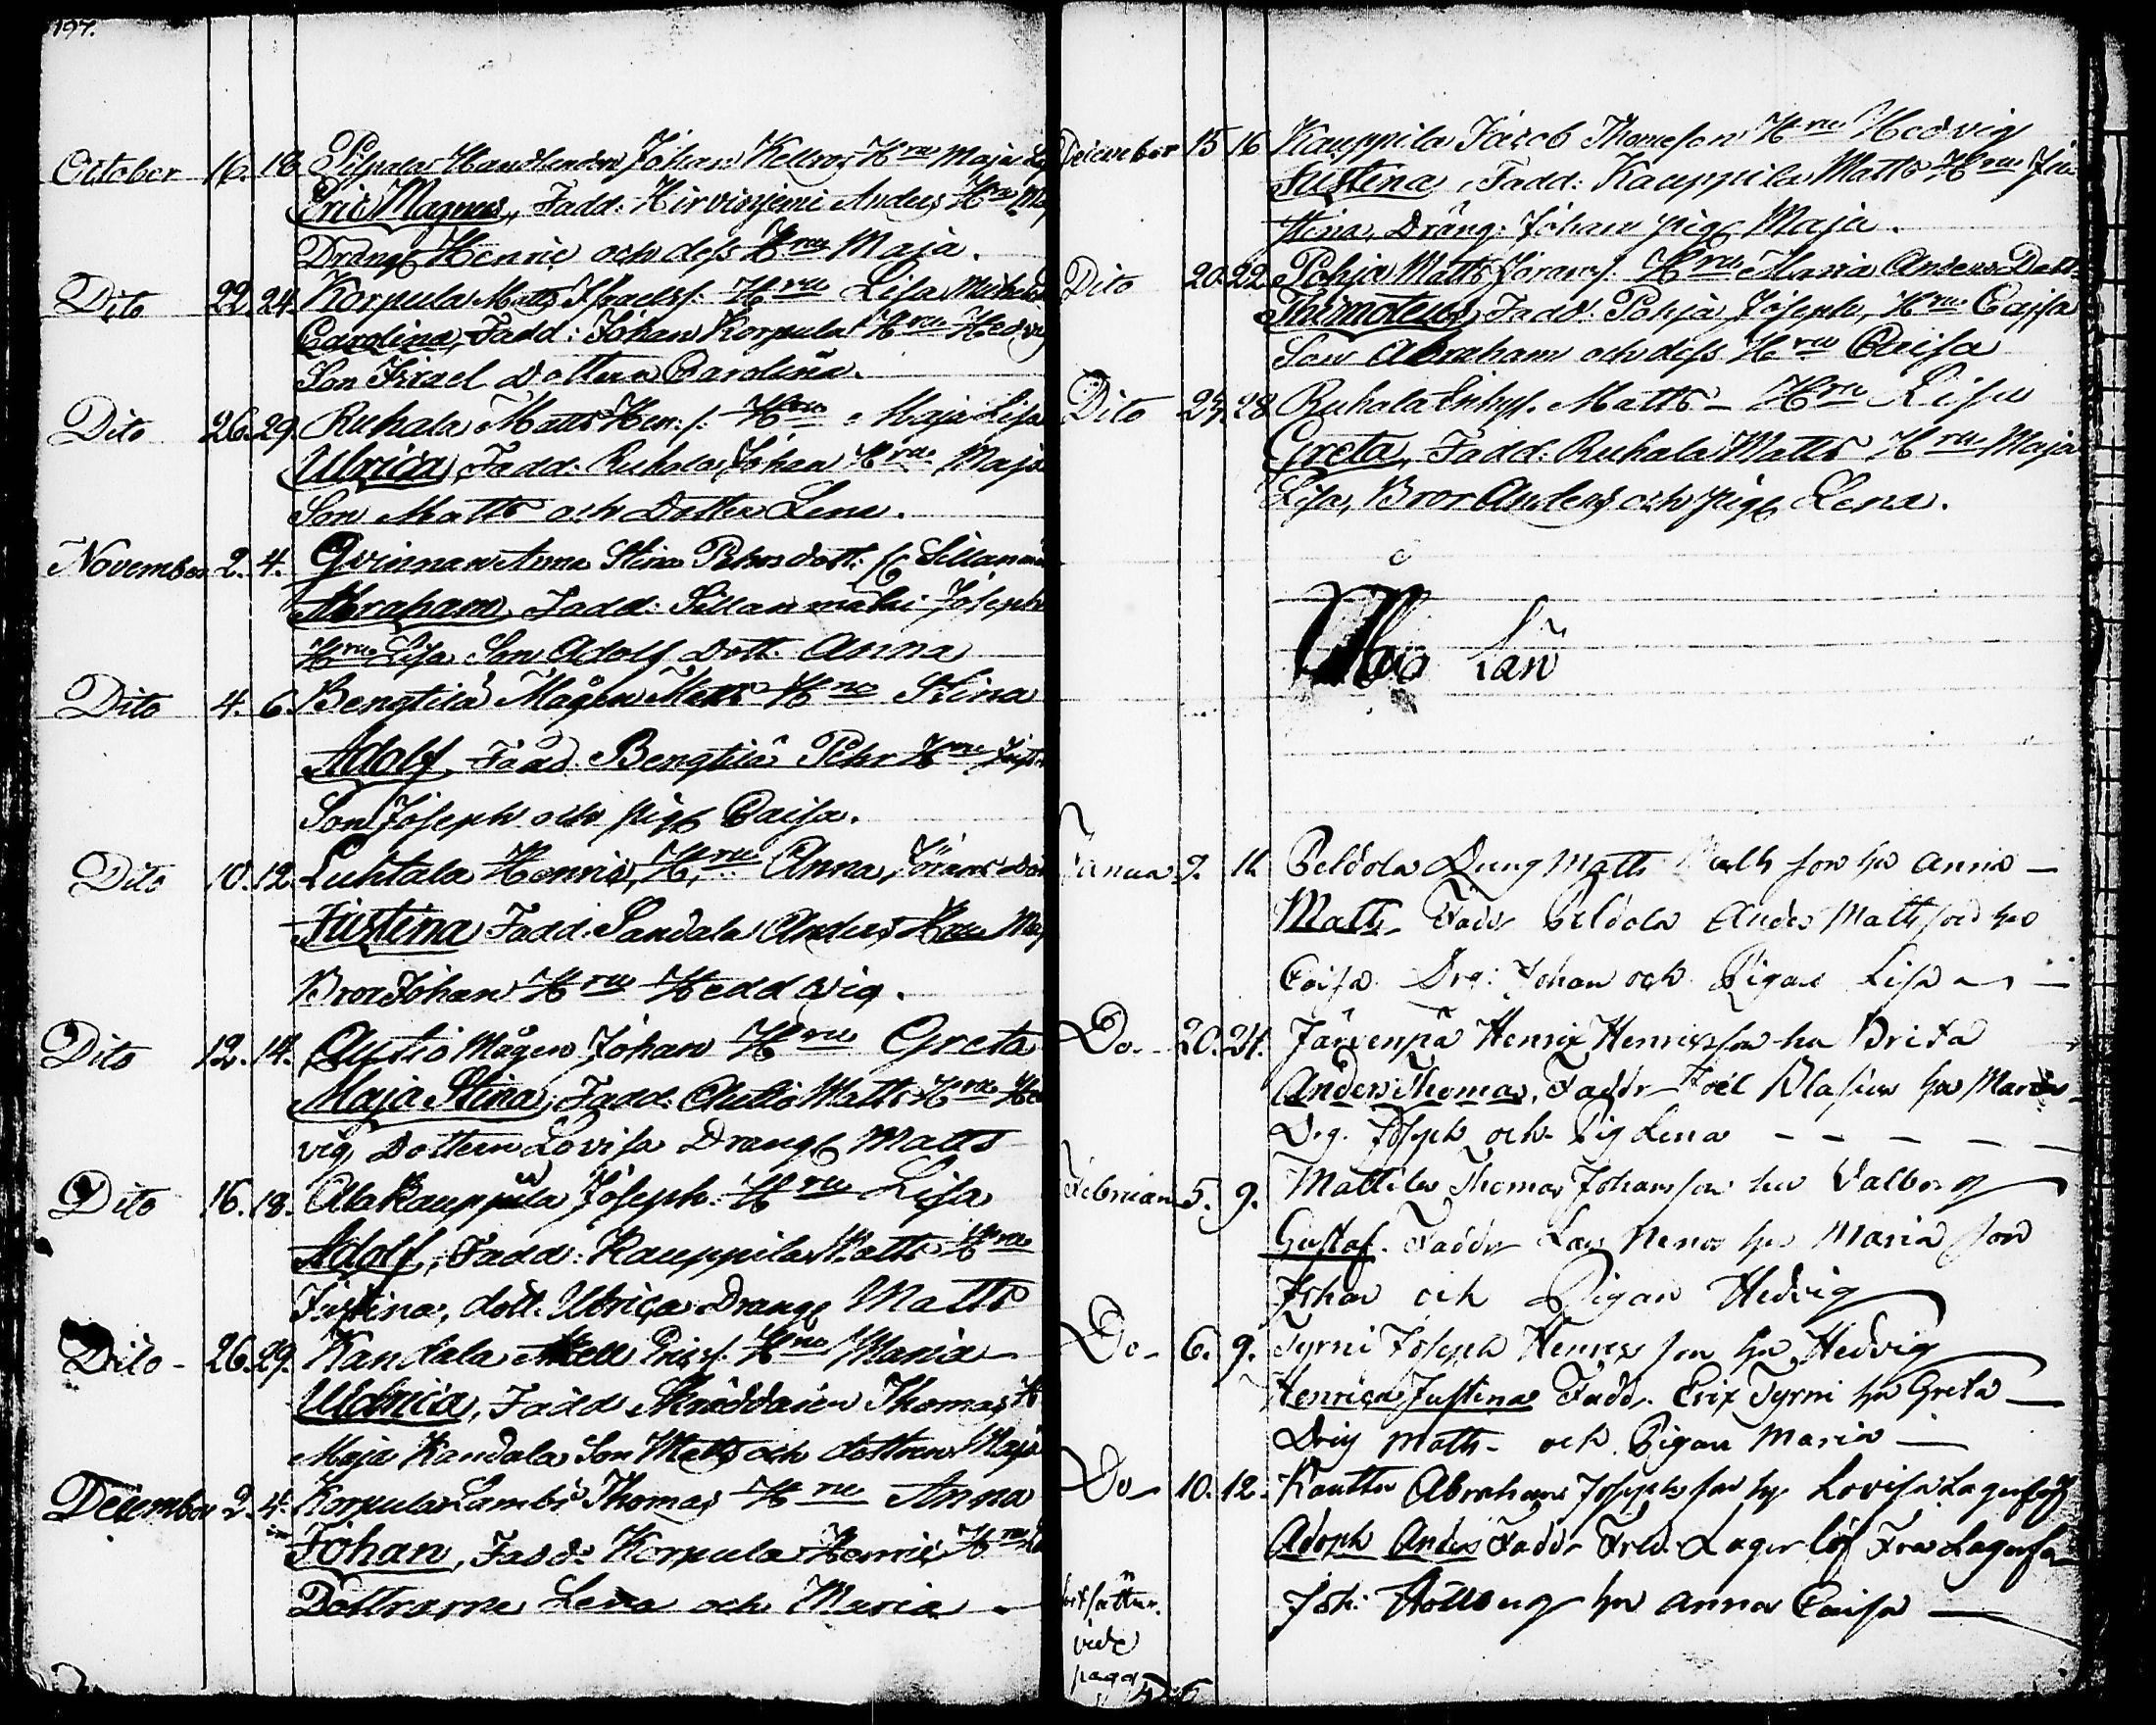 197.
October 16. 18. Handlanden Johan Kellros Hru Maja
Eric Magnus, Fadd: Hirvinjemi Anders Hru Maj
Drängs Henric och dess Hru Maja.
Dito 22. 24. Korpula Matts Israelss: Hru Lisa Michels
Carolina, Fadd: Johan Korpula Hru Hedvig
Son Israel dottern Carolina.
Dito 26. 29. Ruhala Matts Hen: s: Hru Maja Lisa
Ulrica, Fadd: Ruhala Johan Hru Maja
Son Matts och Dotter Lena.
November 2. 4. Qvinnan Anna Stina Pehrsdott: fr Sillanmä
Abraham, Fadd: Sillanmäki Joseph
Hru Lisa Son Adolf Dott. Anna
Dito 4. 6. Bengtilä Mågen Matts Hru Stina
Adolf, Fadd Bengtilä Pehr Hru Justi
Son Joseph och pig Caisa.
Dito 10. 12. Luhtala Henric, Hru Anna Jörans dot
Justina Fadd: Sandala Anders Hru Maj
Bror Johan Hru Heddwig.
Dito 12. 14. Autio Mågen Johan Hru Greta
Maja Stina, Fadd: Autio Matts Hru Hed
vig Dottern Lovisa Drangs Matts
Dito 16. 18. Ala Kauppila Joseph: Hru Lisa
Adolf, Fadd: Kauppila Matts Hru
Justina, dott. Ulrica Drangs Matts
Dito - 26. 29. Kandala Matts Ericss. Hru Maria
Uldrica, Fadd Skräddaren Thomas H
Maja Kandala Son Matts och dottren Maja
December 2. 4. Korpula Lambi Thomas Hru Anna
Johan, Fadd: Korpula Henric, Hru
Döttrarne Lena och Maria
December 15 16 Kauppila Jacob Thomeson Hru Hedvig
Justina, Fadd: Kauppila Matts Hru Jus
tina, Dräng: Johan pigs Maja.
Dito 20. 22 Pohja Matts Jörans s. Hru Maria Anders Dott
Thimoteus, Fadd: Pohja Joseph, Hru Cajsa
Son Abraham och dess Hru Caisa
Dito 27. 28 Ruhala Inhys. Matts - Hru Lisa
Greta, Fadd: Ruhala Matts Hru Maja
Lisa, Bror Anders och pigs Lena.
Åbo Län
Januar 9. 11. Peldola Dreng Matts Matts son hu Anna -
Matts - Fadr Peldola Anders Matts son hu
Caisa. Drg: Johan och Pigan Lisa
Do. - 20. 24. Järvenpä Henrix Henricsson hu Brita
Anders Thomas, Faddr Joel Blasius hu Maria
Drg. Joseph och Pig Lena - - - - -
Februari 5. 9. Mattila Thomas Johansson hu Valborg
Gustaf. Faddr Lars Nenos hu Maria son
Johan och Pigan Hedvig
Do - 6. 9. Tyrni Joseph Henrixson hu Hedvig
Henrica Justina Fadd. Erix Tyrni hu Greta -
Dreng Matts - och Pigan Maria -
Do - 10. 12. Kauttu Abraham Josephs son hu Lovisa
Adoph Anders Faddr Fred: Lagerlöf Fru
Joh: hu Anna Caisa -
fortsättn.
vide
pagg